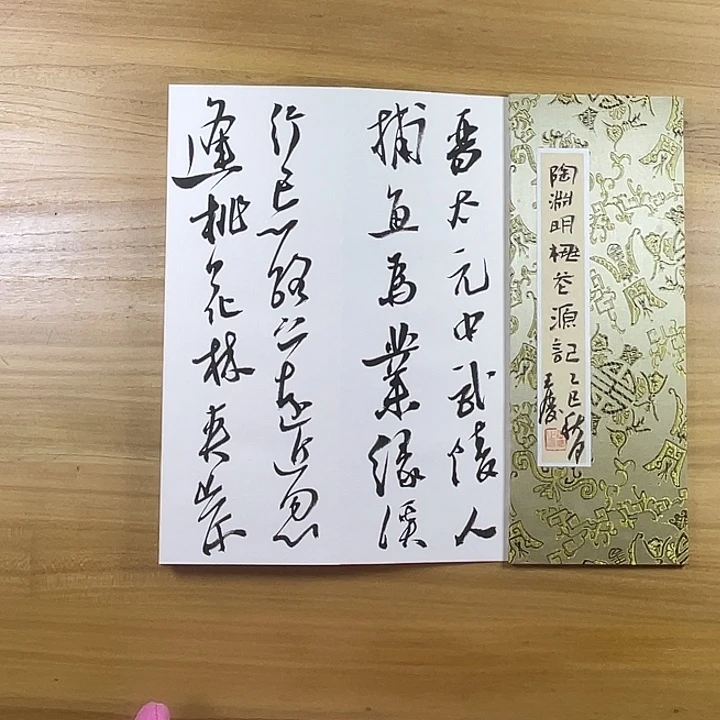 陶淵明桃花源記
乙巳秋月
晉太元中武陵人
捕魚為業緣溪
行忘路之遠近忽
逢桃花林夾岸